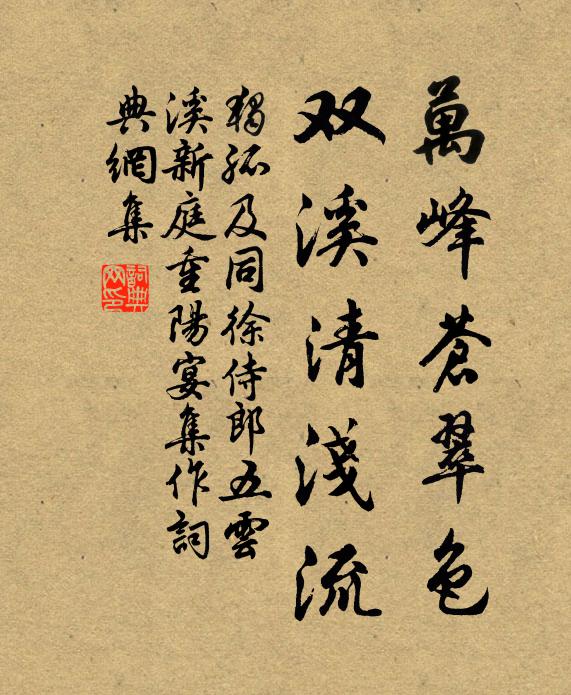 萬峰蒼翠色
双溪清淺流
獨孤及同徐侍郎五雲
溪新庭重陽宴集作詞
典網集
詞典
网印